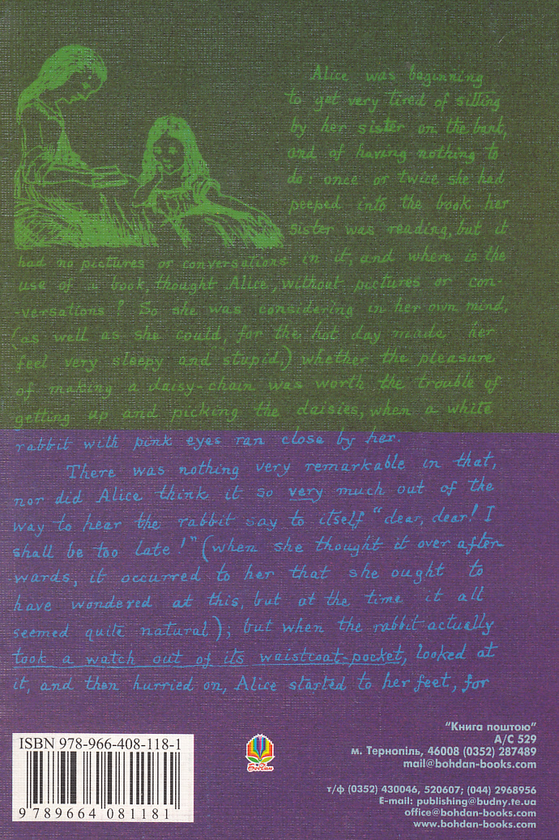 Alice was beginning
to get very tired of sitting
by her sister on the bank,
and of having nothing to
do: once or twice she had
peeped into the book her
sister was reading, but it
had no pictures or conversations in it, and where is the
use of a book, thought Alice, without pictures or con-
-versations? So she was considering in her own mind,
(as well as she could, for the hot day made her
feel very sleepy and stupid,) whether the pleasure
of making a daisy-chain was worth the trouble of
getting up and picking the daisies, when a white
rabbit with pink eyes ran close by her.
There was nothing very remarkable in that,
nor did Alice think it so very much out of the
way to hear the rabbit say to itself "dear, dear! I
shall be too late!" (when she thought it over after-
wards, it occurred to her that she ought to
have wondered at this, but at the time it all
seemed quite natural); but when the rabbit actually
took a watch out of its waistcoat-pocket, looked at
it, and then hurried on, Alice started to her feet, for
"Книга поштою"
А/С 529
м. Тернопіль, 46008 (0352) 287489
mail@bohdan-books.com
т/ф (0352) 430046, 520607; (044) 2968956
E-mail: publishing@budny.te.ua
office@bohdan-books.com
www.bohdan-books.com
ISBN 978-966-408-118-1
9789664081181
Богдан